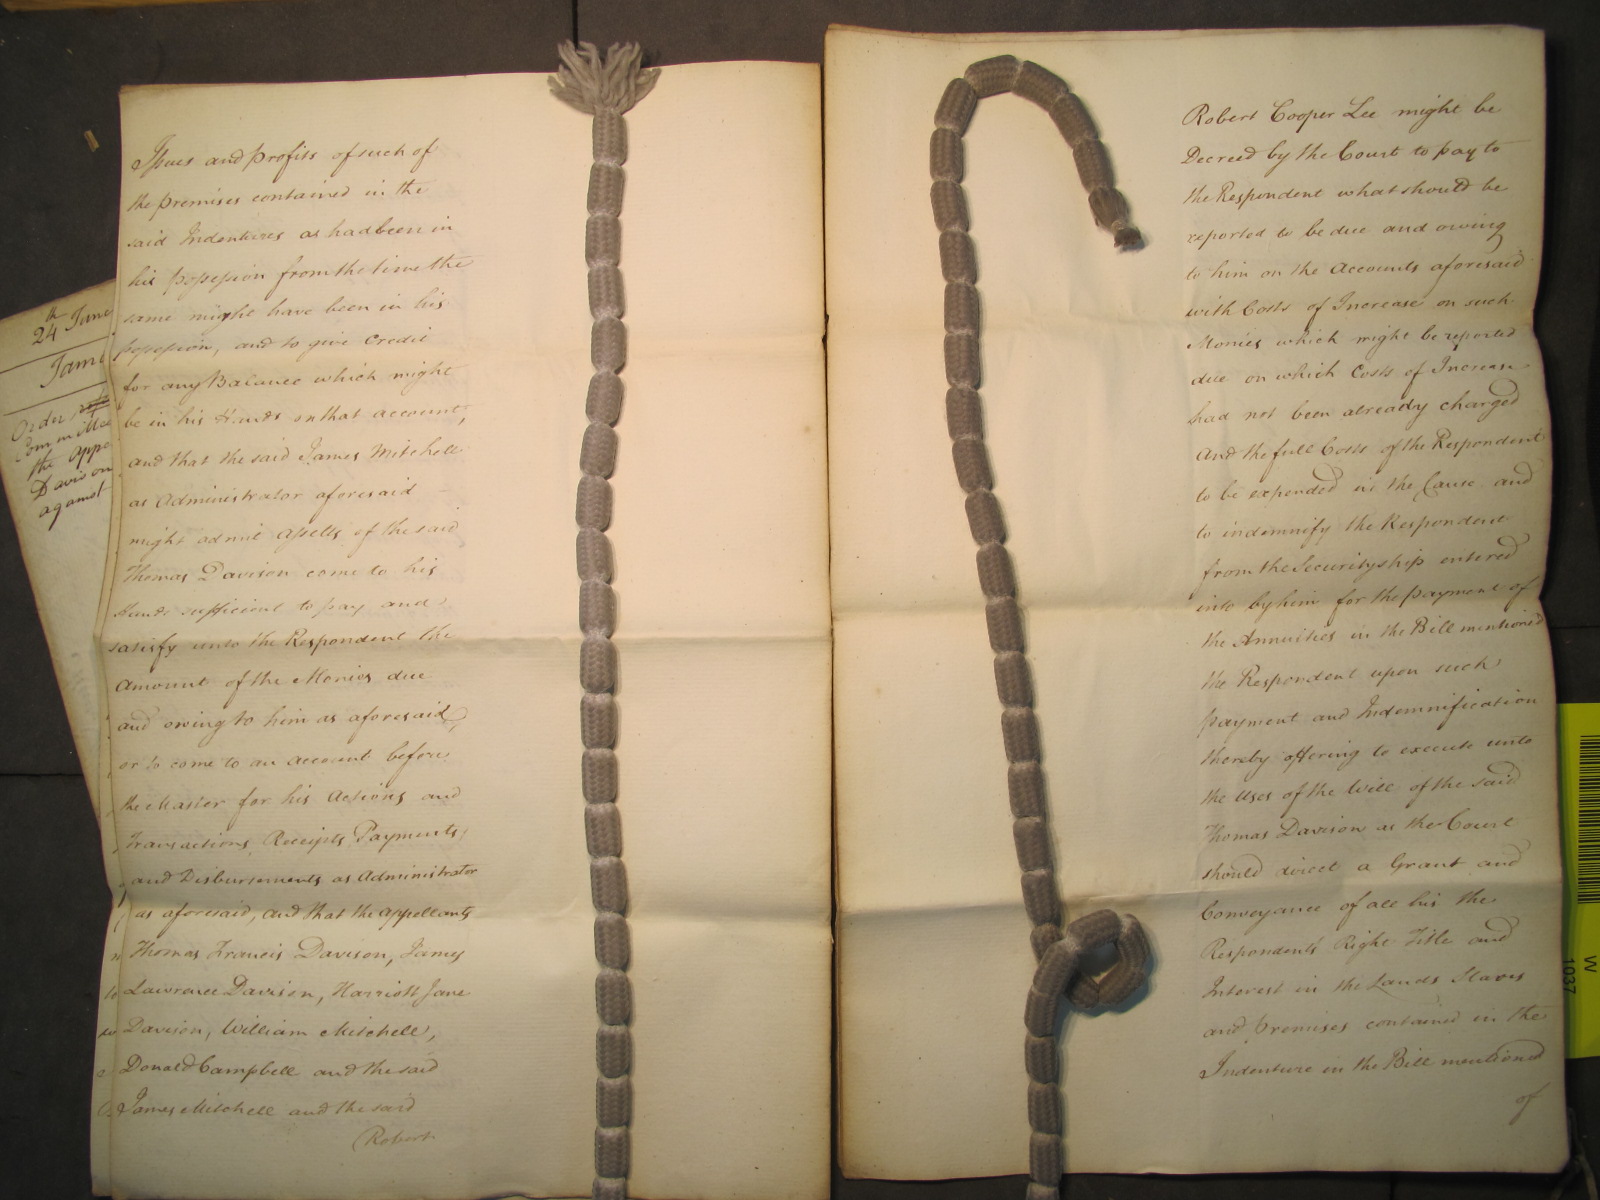 24th June
Jam
Order
Committee
the Appe
Davison
against
Issues and profits of such of
the premises contained in the
said Indentures as had been in
his possession from the time the
same might have been in his
possession, and to give Credit
for any Balance which might
be in his Hands on that account,
and that the said James Mitchell
as Administrator aforesaid
might admit assetts of the said
Thomas Davison come to his
Hands sufficient to pay and
satisfy unto the Respondent the
Amount of the Monies due
and owing to him as aforesaid,
or to come to an account before
the Master for his Actions and
Transactions Receipts Payments,
and Disbursements as Administrator
as aforesaid, and that the appellants
Thomas Francis Davison, James
Lawrence Davison, Harriott Jane
Davison, William Mitchell,
Donald Campbell and the said
James Mitchell and the said
Robert
Robert Cooper Lee might be
Decreed by the Court to pay to
the Respondent what should be
reported to be due and owing
to him on the Accounts aforesaid
with Costs of Increase on such
Monies which might be reported
due on which Costs of Increase
had not been already charged
And the full Costs of the Respondent
to be expended in the Cause and
to indemnify the Respondent
from the Securityship entered
into by him for the payment of
the Annuities in the Bill mentioned
the Respondent upon such
payment and Indemnification
thereby offering to execute unto
the Uses of the Will of the said
Thomas Davison as the Court
should direct a Grant and
Conveyance of all his the
Respondents Right Title and
Interest in the Lands Slaves
and premises contained in the
Indenture in the Bill mentioned
of
W
1037